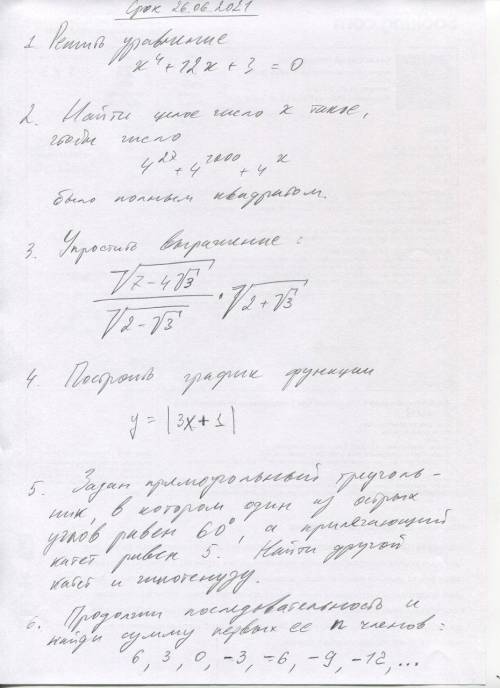 Срок 26.06.2021
1. Решить уравнение
x⁴ + 12x + 3 = 0
2. Найти целое число x такое,
чтобы число
4²⁷ + 4²⁰⁰⁰ + 4ˣ
было полным квадратом.
3. Упростить выражение:
√(7 - 4√3) / √(2 - √3) · √(2 + √3)
4. Построить график функции
y = |3x + 1|
5. Задан прямоугольный треуголь-
ник, в котором один из острых
углов равен 60°, а прилежащий
катет равен 5. Найти другой
катет и гипотенузу.
6. Продолжи последовательность и
найди сумму первых ее n членов:
6, 3, 0, -3, -6, -9, -12, ...